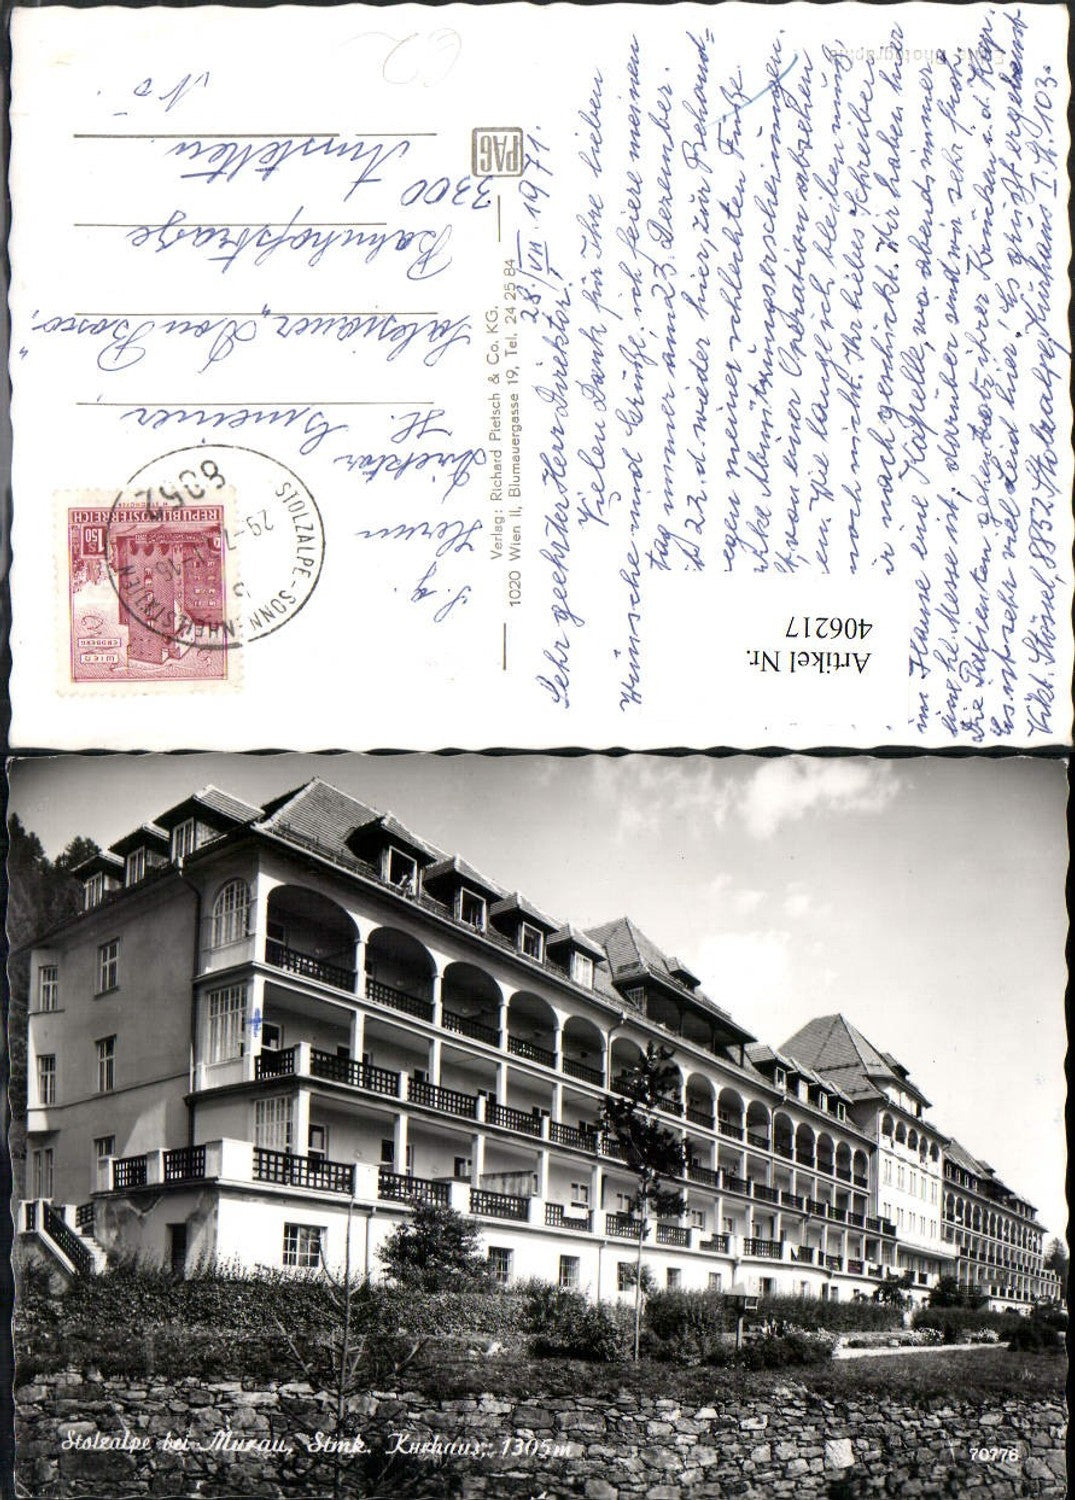 28./VII. 1971.
Sehr geehrter Herr Direktor!
Vielen Dank für Ihre lieben
Wünsche und Grüße, ich feiere meinen
tag immer am 23. Dezember.
22. d. wieder hier, zur Behand=
wegen meiner schlechten Füße.
Abnützungserscheinungen.
von einer Operation absehen
Wie lange ich bleiben muß
noch nicht. Ihr liebes Schreiben
nachgeschickt. Wir haben hier
im Hause eine Kapelle, wo abends immer
eine hl. Messe ist, darüber sind wir sehr froh.
Die Patienten gehen trotz ihrer Krücken i. d. Kap.
Es ist sehr viel Leid hier! Es grüßt ergebenst
Vikt. Stössel, 8852 Stolzalpe, Kurhaus I. St. 103.
Echte Photographie
Artikel Nr.
406217
PAG
Verlag: Richard Pietsch & Co. KG.
1020 Wien II, Blumauergasse 19, Tel. 24 25 84
S. g. Herrn
Direktor
H.
Salesianer „Don Bosco“
Bahnhofstraße
3300 Amstetten
N.Ö.
REPUBLIK ÖSTERREICH
S 1.50
WIEN
ERDBERG
8852
STOLZALPE-SONNENHEILSTÄTTEN
Stolzalpe bei Murau, Stmk. Kurhaus, 1305m
70776